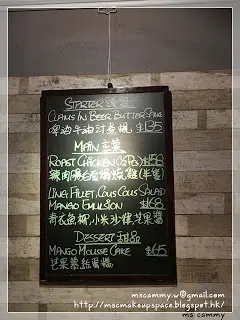 STARTER
CLAMS IN BEER BUTTER SAKE
啤酒牛油汁煮蜆 $135
MAIN 主菜
ROAST CHICKEN $158
LING FILLET, COUS COUS SALAD
MANGO EMULSION $168
DESSERT 甜品
MANGO MOUSSE CAKE $65
芒果慕絲蛋糕
mscammy.w@gmail.com
http://mscmakeupspace.blogspot.hk/
ms cammy